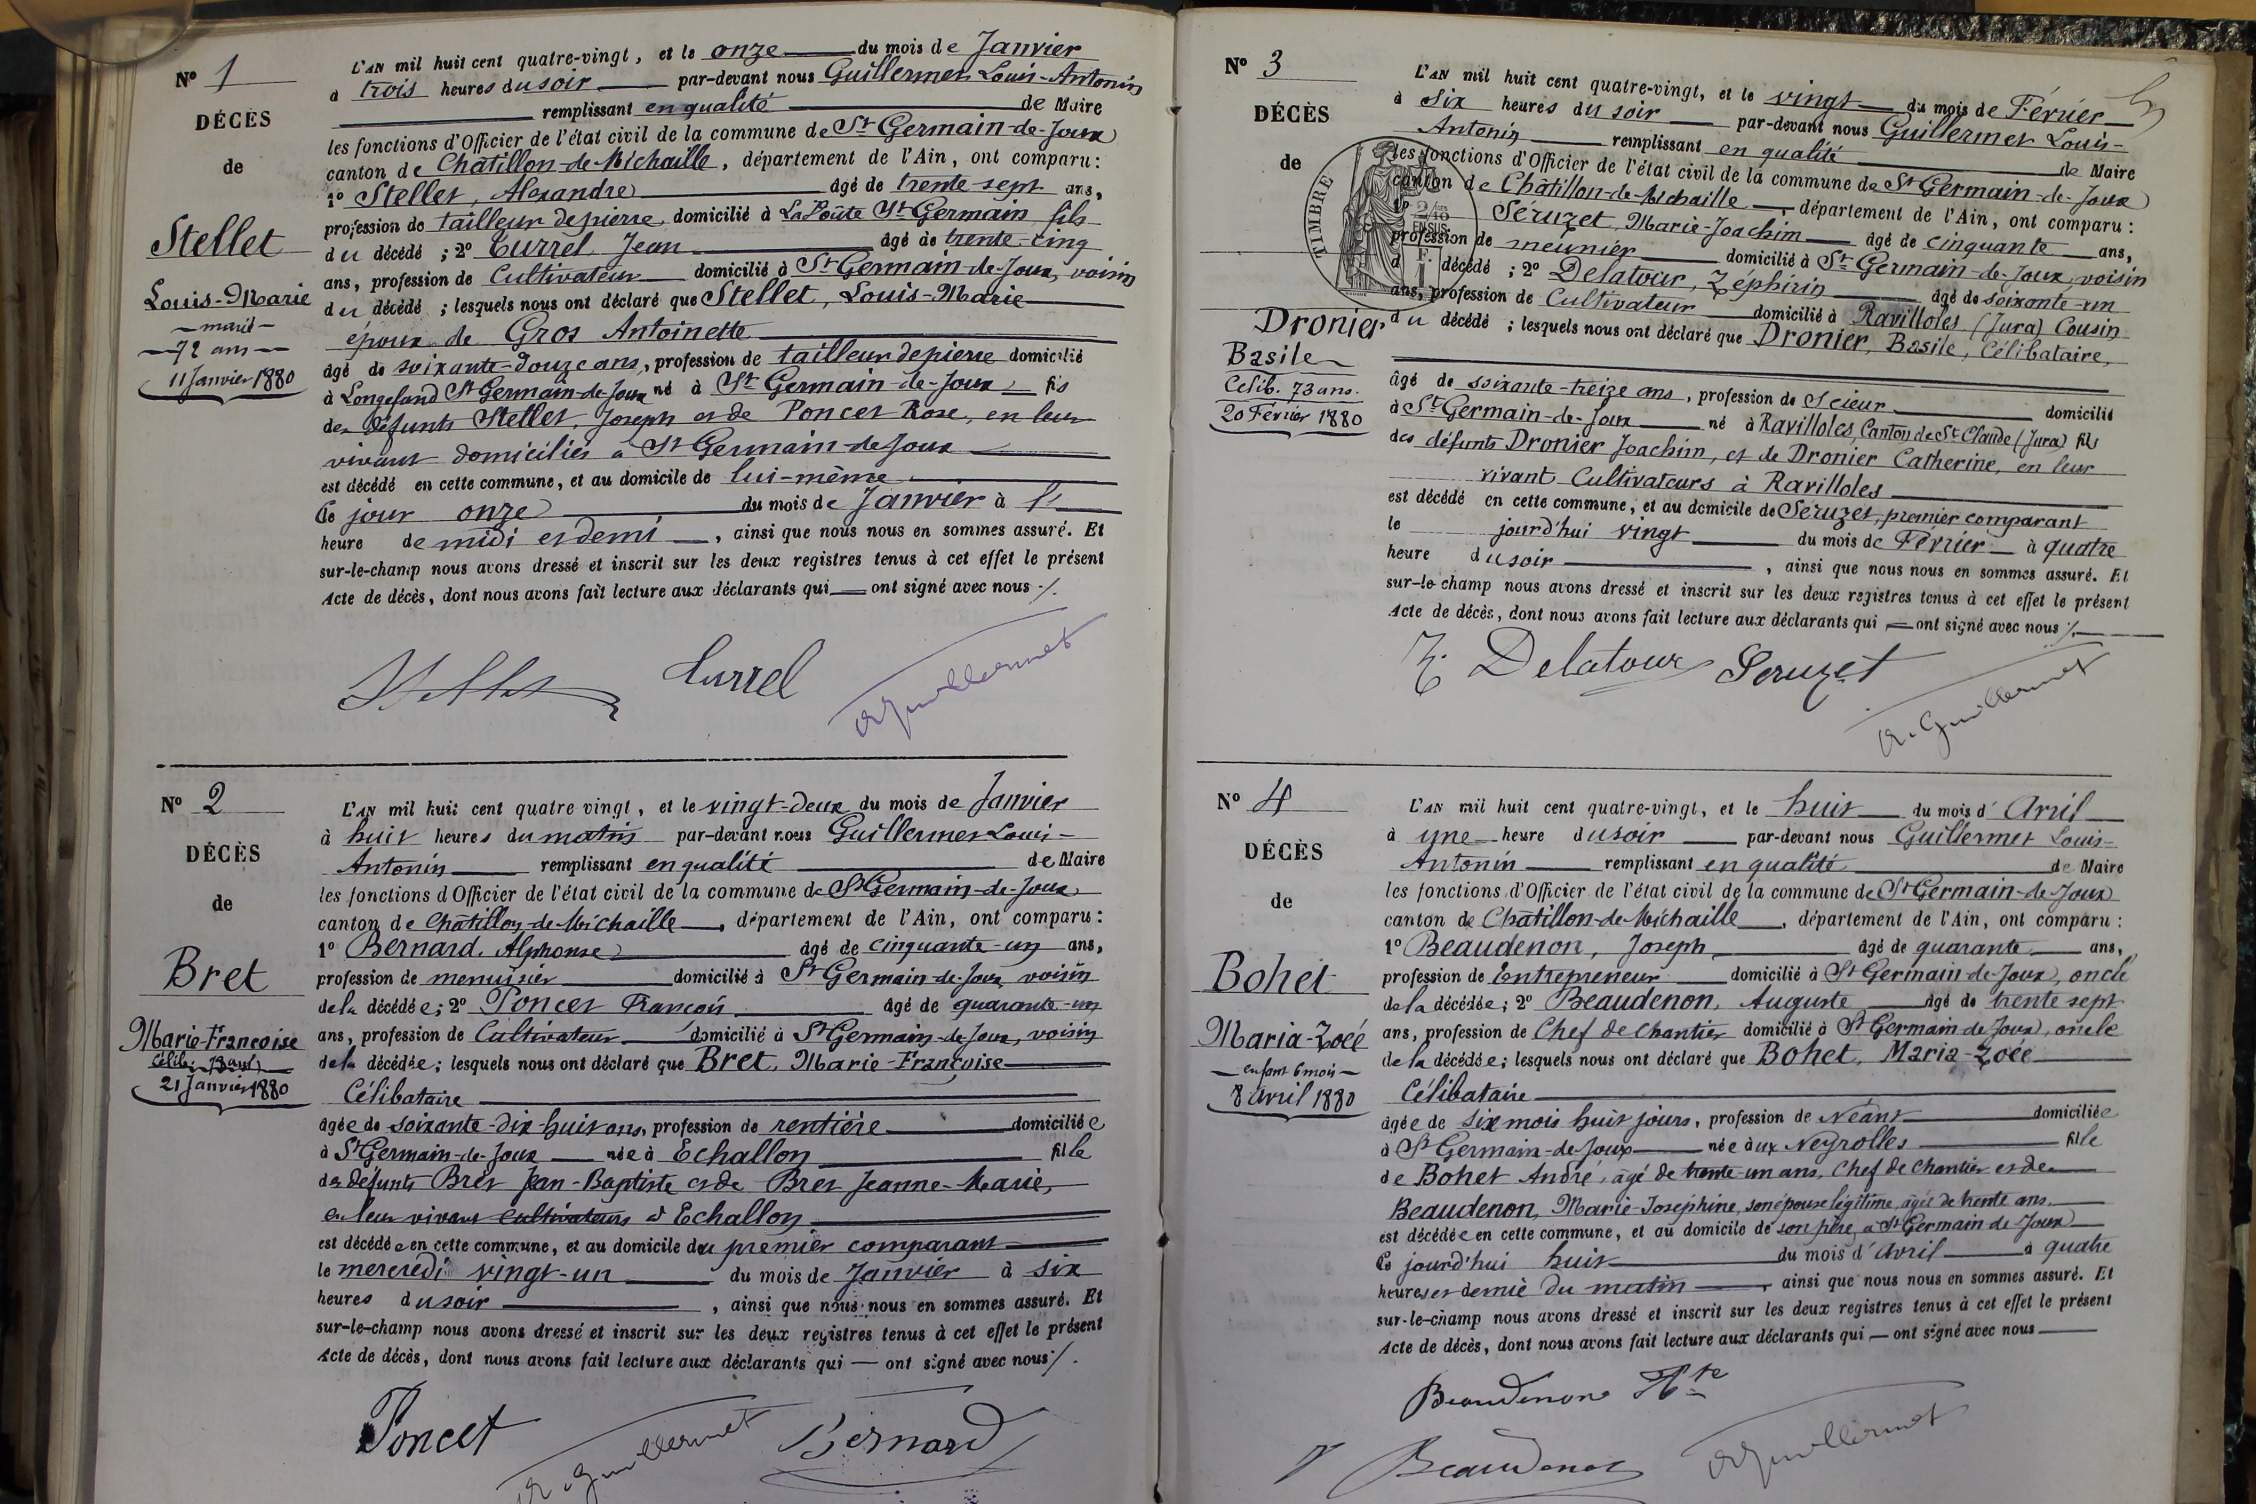 N° 1
DÉCÈS
de
Stellet
Louis-Marie
marié
72 ans
11 Janvier 1880
L'AN mil huit cent quatre-vingt, et le onze du mois de Janvier
à trois heures du soir par-devant nous Guillermet Louis-Antonin
remplissant en qualité de Maire
les fonctions d'Officier de l'état civil de la commune de St Germain-de-Joux
canton de Châtillon-de-Michaille, département de l'Ain, ont comparu :
1° Stellet, Alexandre âgé de trente-sept ans,
profession de tailleur de pierre domicilié à La Poûte St Germain fils
du décédé ; 2° Turrel Jean âgé de trente-cinq
ans, profession de Cultivateur domicilié à St Germain-de-Joux, voisin
du décédé ; lesquels nous ont déclaré que Stellet, Louis-Marie
époux de Gros Antoinette
âgé de soixante-douze ans, profession de tailleur de pierre domicilié
à Longefand St Germain-de-Joux né à St Germain-de-Joux fils
des défunts Stellet, Joseph et de Poncet Rose, en leur
vivant domiciliés à St Germain-de-Joux
est décédé en cette commune, et au domicile de lui-même
Ce jour onze du mois de Janvier à l'
heure de midi et demi, ainsi que nous nous en sommes assuré. Et
sur-le-champ nous avons dressé et inscrit sur les deux registres tenus à cet effet le présent
Acte de décès, dont nous avons fait lecture aux déclarants qui ont signé avec nous ./.
Stellet Turrel A Guillermet
N° 2
DÉCÈS
de
Bret
Marie-Françoise
Célib. 78 ans
21 Janvier 1880
L'AN mil huit cent quatre vingt, et le vingt-deux du mois de Janvier
à huit heures du matin par-devant nous Guillermet Louis-
Antonin remplissant en qualité de Maire
les fonctions d'Officier de l'état civil de la commune de St Germain-de-Joux
canton de Châtillon-de-Michaille, département de l'Ain, ont comparu :
1° Bernard, Alphonse âgé de cinquante-un ans,
profession de menuisier domicilié à St Germain-de-Joux voisin
de la décédée ; 2° Poncet François âgé de quarante-un
ans, profession de Cultivateur domicilié à St Germain-de-Joux, voisin
de la décédée ; lesquels nous ont déclaré que Bret, Marie-Françoise
Célibataire
âgée de soixante-dix-huit ans, profession de rentière domiciliée
à St Germain-de-Joux née à Echallon fille
des défunts Bret Jean-Baptiste et de Bret Jeanne-Marie,
en leur vivant Cultivateurs à Echallon
est décédée en cette commune, et au domicile du premier comparant
le mercredi vingt-un du mois de Janvier à six
heures du soir, ainsi que nous nous en sommes assuré. Et
sur-le-champ nous avons dressé et inscrit sur les deux registres tenus à cet effet le présent
Acte de décès, dont nous avons fait lecture aux déclarants qui — ont signé avec nous ./.
Poncet A. Guillermet Bernard
N° 3
DÉCÈS
de
TIMBRE
2/10
EN SUS
1 F.
Dronier
Basile
Célib. 73 ans.
20 Février 1880
L'AN mil huit cent quatre-vingt, et le vingt du mois de Février
à six heures du soir par-devant nous Guillermet Louis-
Antonin remplissant en qualité de Maire
les fonctions d'Officier de l'état civil de la commune de St Germain-de-Joux
canton de Châtillon-de-Michaille, département de l'Ain, ont comparu :
1° Séruzet, Marie-Joachim âgé de cinquante ans,
profession de meunier domicilié à St Germain-de-Joux, voisin
d décédé ; 2° Delatour, Zéphirin âgé de soixante-un
ans, profession de Cultivateur domicilié à Ravilloles (Jura) Cousin
du décédé ; lesquels nous ont déclaré que Dronier, Basile, Célibataire,
âgé de soixante-treize ans, profession de Scieur domicilié
à St Germain-de-Joux né à Ravilloles, Canton de St Claude (Jura) fils
des défunts Dronier Joachim, et de Dronier Catherine, en leur
vivant Cultivateurs à Ravilloles
est décédé en cette commune, et au domicile de Séruzet, premier comparant
le jourd'hui vingt du mois de Février à quatre
heure du soir, ainsi que nous nous en sommes assuré. Et
sur-le champ nous avons dressé et inscrit sur les deux registres tenus à cet effet le présent
Acte de décès, dont nous avons fait lecture aux déclarants qui ont signé avec nous ./.
Z. Delatour Seruzet A. Guillermet
N° 4
DÉCÈS
de
Bohet
Maria-Zoée
enfant 6 mois
8 avril 1880
L'AN mil huit cent quatre-vingt, et le huit du mois d'Avril
à une heure du soir par-devant nous Guillermet Louis-
Antonin remplissant en qualité de Maire
les fonctions d'Officier de l'état civil de la commune de St Germain-de-Joux
canton de Châtillon-de-Michaille, département de l'Ain, ont comparu :
1° Beaudenon, Joseph âgé de quarante ans,
profession de Entrepreneur domicilié à St Germain-de-Joux, oncle
de la décédée ; 2° Beaudenon, Auguste âgé de trente sept
ans, profession de Chef de chantier domicilié à St Germain de Joux, oncle
de la décédée ; lesquels nous ont déclaré que Bohet, Maria-Zoée
Célibataire
âgée de six mois huit jours, profession de Néant domiciliée
à St Germain-de-Joux née aux Neyrolles fille
de Bohet André, âgé de trente-un ans, Chef de chantier et de
Beaudenon, Marie-Joséphine, son épouse légitime, âgée de trente ans
est décédée en cette commune, et au domicile de son père, à St Germain de Joux
Ce jourd'hui huit du mois d'Avril à quatre
heures et demie du matin, ainsi que nous nous en sommes assuré. Et
sur-le-champ nous avons dressé et inscrit sur les deux registres tenus à cet effet le présent
Acte de décès, dont nous avons fait lecture aux déclarants qui — ont signé avec nous
Beaudenon Ate
Beaudenon A Guillermet